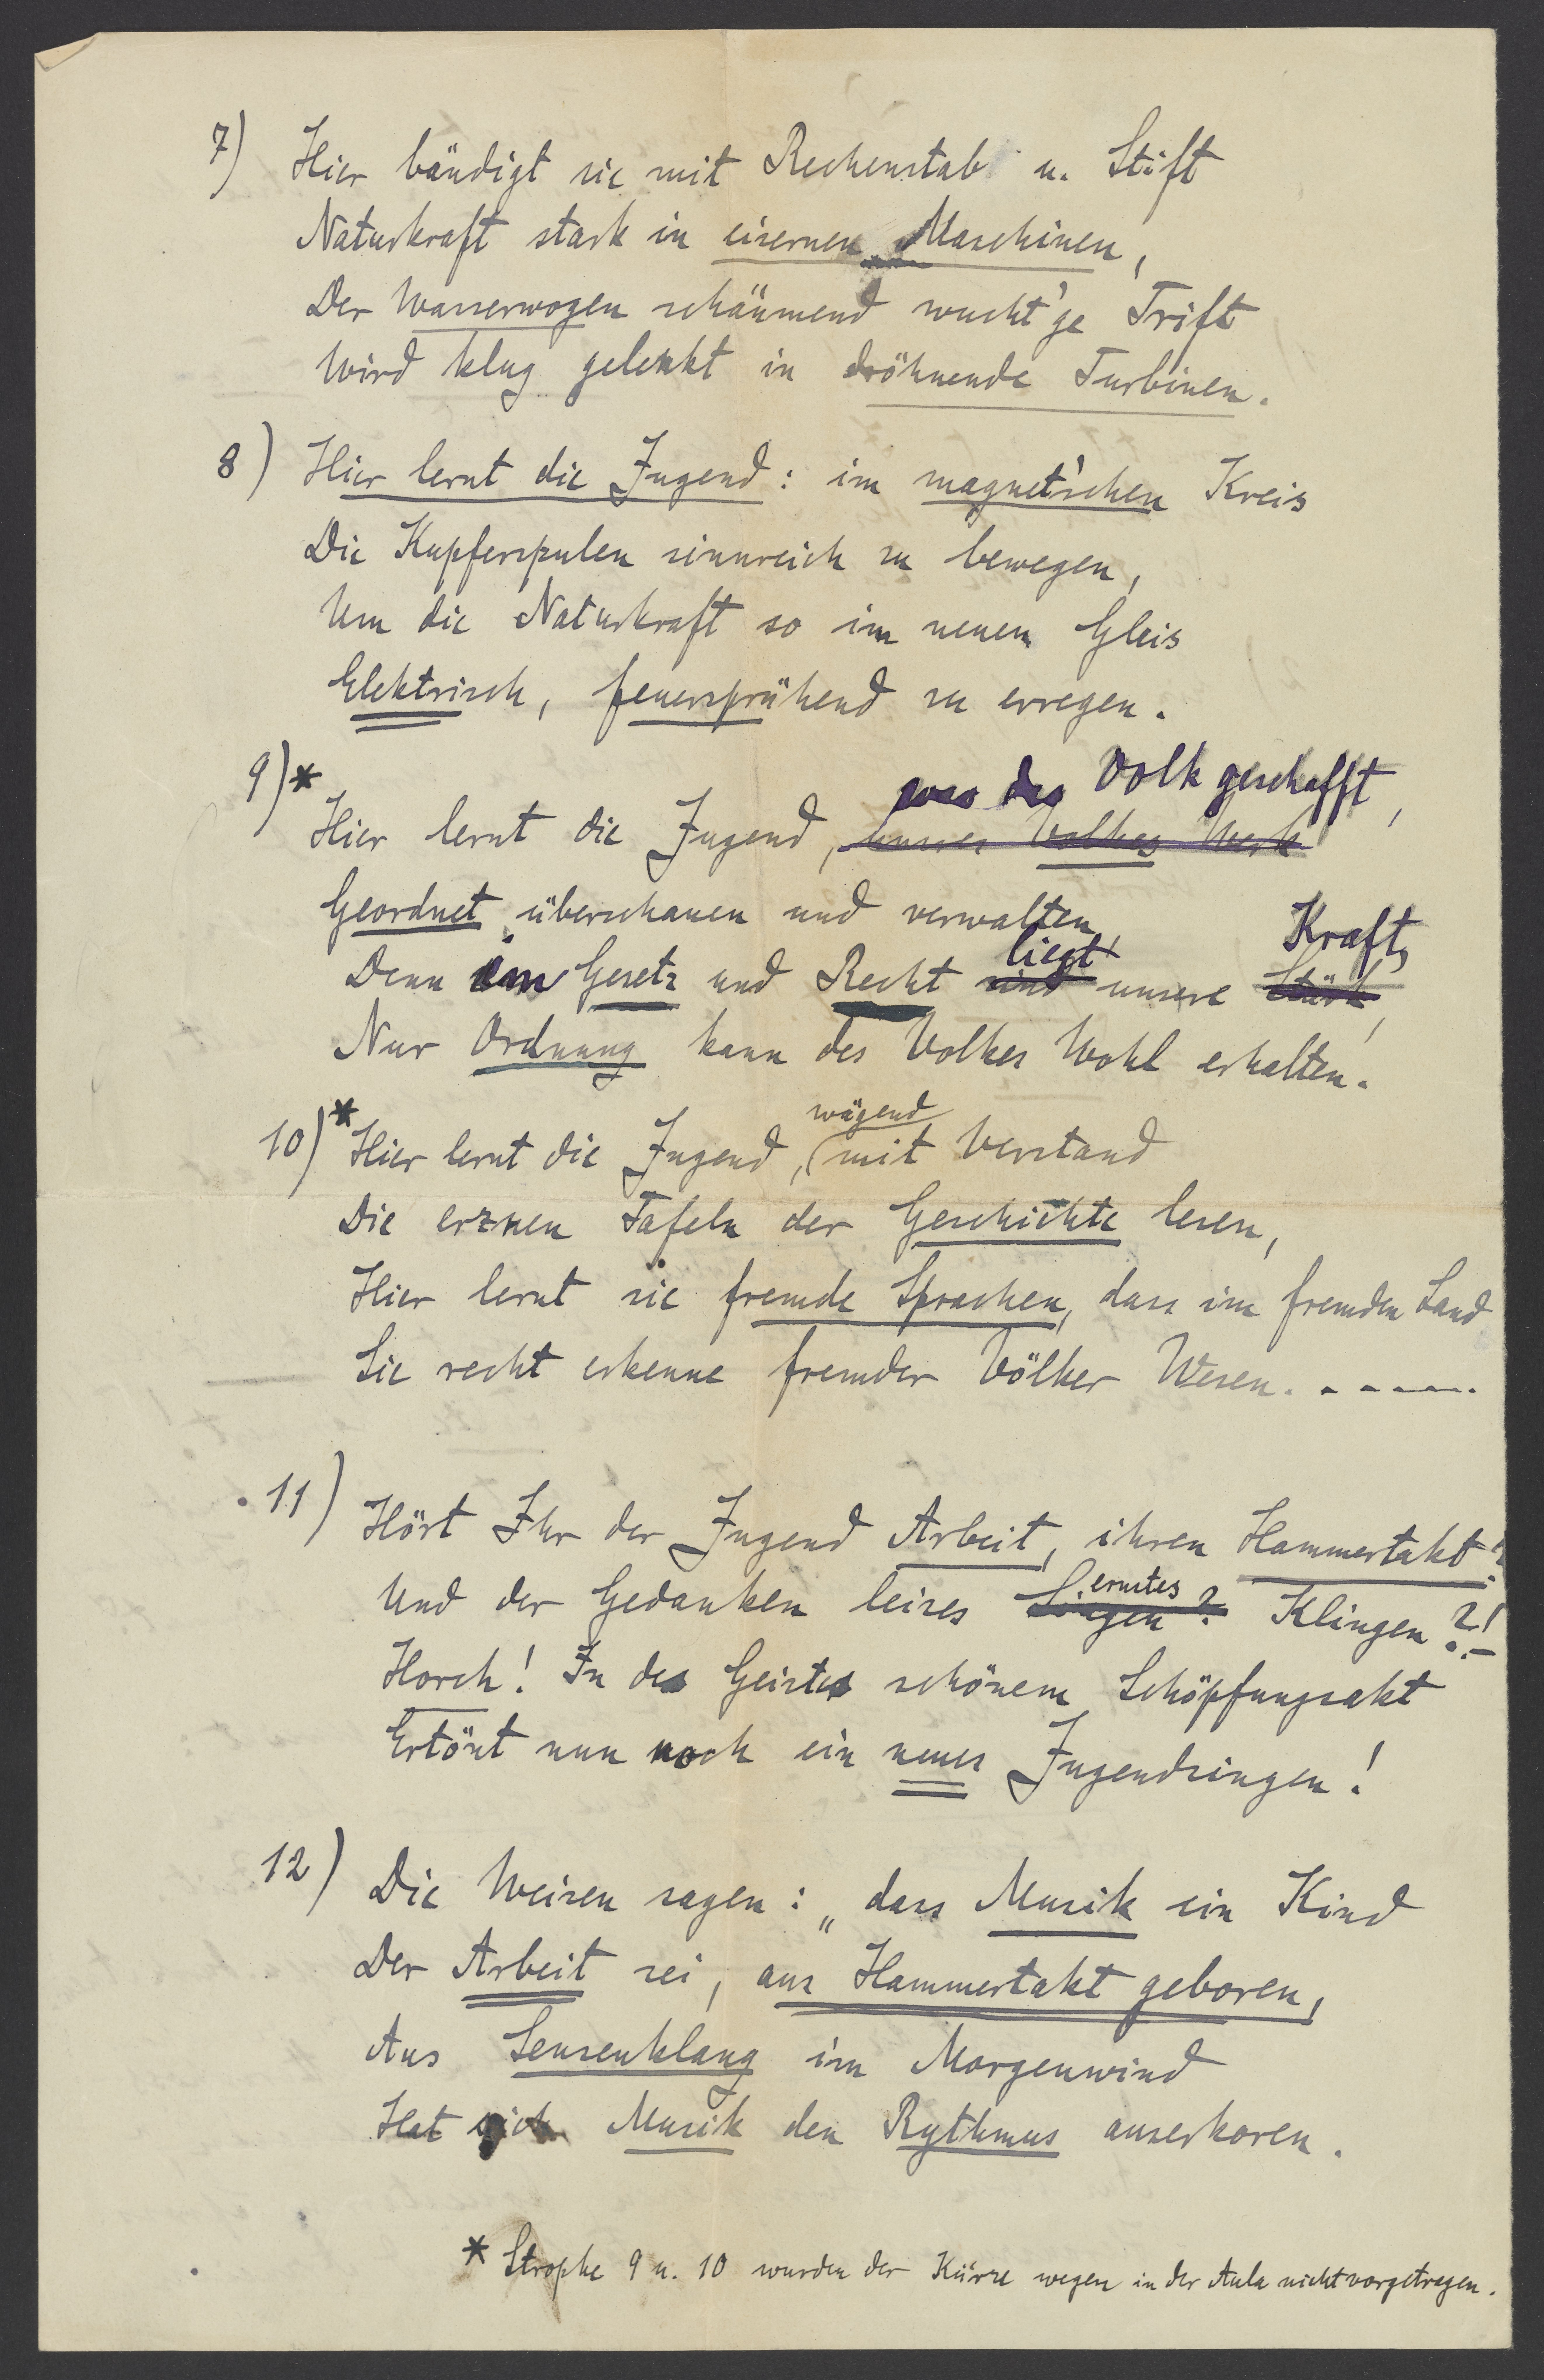 7) Hier bändigt sie mit Rechenstab u. Stift
Naturkraft stark in eisernen Maschinen,
Der Wasserwogen schäumend wucht'ge Trift
Wird klug gelenkt in dröhnende Turbinen.
8) Hier lernt die Jugend: im magnet'schen Kreis
Die Kupferspulen sinnreich zu bewegen,
Um die Naturkraft so im neuen Gleis
Elektrisch, feuersprühend zu erregen.
9)* was das Volk geschafft,
Hier lernt die Jugend, unsres Volkes Werk
Geordnet überschauen und verwalten,
liegt Kraft,
Denn im Gesetz und Recht sind unsere Stärk,
Nur Ordnung kann des Volkes Wohl erhalten.
wägend
10)* Hier lernt die Jugend, (mit Verstand
Die erznen Tafeln der Geschichte lesen,
Hier lernt sie fremde Sprachen, dass im fremden Land
Sie recht erkenne fremder Völker Wesen. . - - - -.
11) Hört Ihr der Jugend Arbeit, ihren Hammertakt?
ernstes
Und der Gedanken leises Singen? Klingen?!-
Horch! In des Geistes schönem Schöpfungsakt
Ertönt nun noch ein neues Jugendsingen!
12) Die Weisen sagen: „dass Musik ein Kind
Der Arbeit sei, aus Hammertakt geboren,
Aus Sensenklang im Morgenwind
Hat sich Musik den Rythmus auserkoren.
* Strophe 9 u. 10 wurden der Kürze wegen in der Aula nicht vorgetragen.